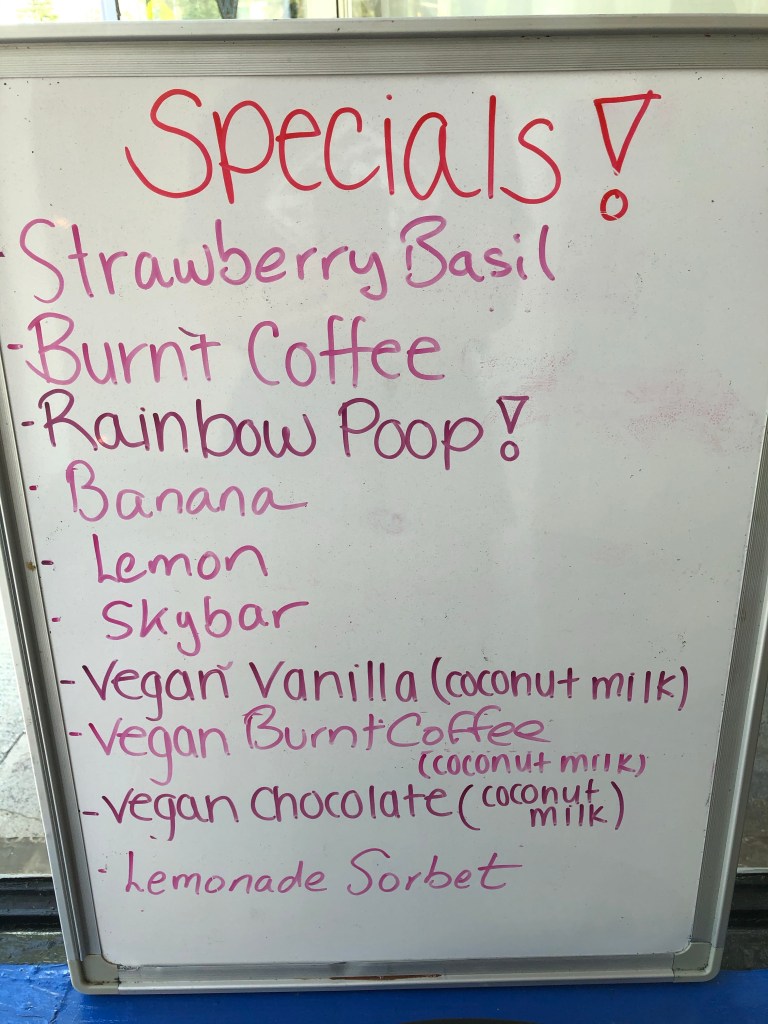 Specials!
- Strawberry Basil
- Burnt Coffee
- Rainbow Poop!
- Banana
- Lemon
- Skybar
- Vegan Vanilla (coconut milk)
- Vegan Burnt Coffee
(coconut milk)
- Vegan Chocolate (coconut
milk)
- Lemonade Sorbet